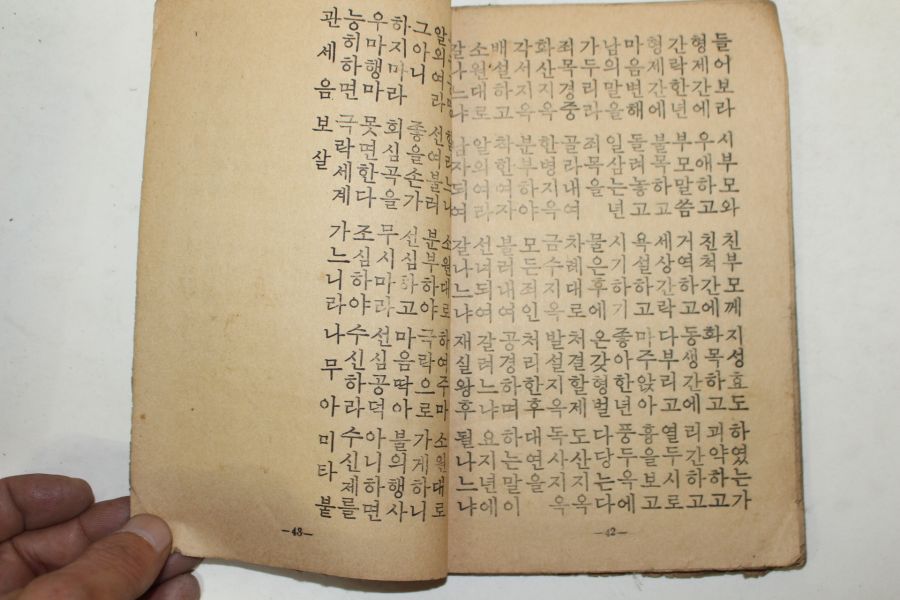 들어보라 시부모와 친부모께 지성효도 하였는가
형제간에 우애하고 친척간에 화목하고 괴약하고
간락한년 부모말씀 거역하고 동생간에 리간하고
형제간에 불목하고 세상간락 다부리고 열두시로
마음변해 돌려놓고 욕설하고 마주앉아 흥을보고
남의말을 일삼는년 시기하기 좋아한년 풍두옥에
가두리라 죄목을 물은후에 온갖형벌 다당는다
죄목경중 골라내여 차례대로 처결할제 도산지옥
화산지옥 한병지옥 금수지옥 발설지옥 독사지옥
각서지옥 분부하야 모든죄인 처리한후 대연을
배설하고 착한여자 불러내여 공경하며 하는말이
소원대로 알외여라 선녀되여 갈려느냐 요지년에
갈나느냐 남자되여 갈나느냐 재실왕후 될나느냐
—42—
할라느냐 소원대로 하여주마 소원대로
알외여라 선여불러 분부하야 극락으로 가게하니
그아니 좋을손가 선심하고 마음딱아 불의행사
하지마라 회심곡을 무시마라 선심공덕 아니하면
우마행마 못면한다 조심하야 수신하라 수신제를
능히하면 극락세계 가느니라
관세음 보살 나무아미타불
—43—